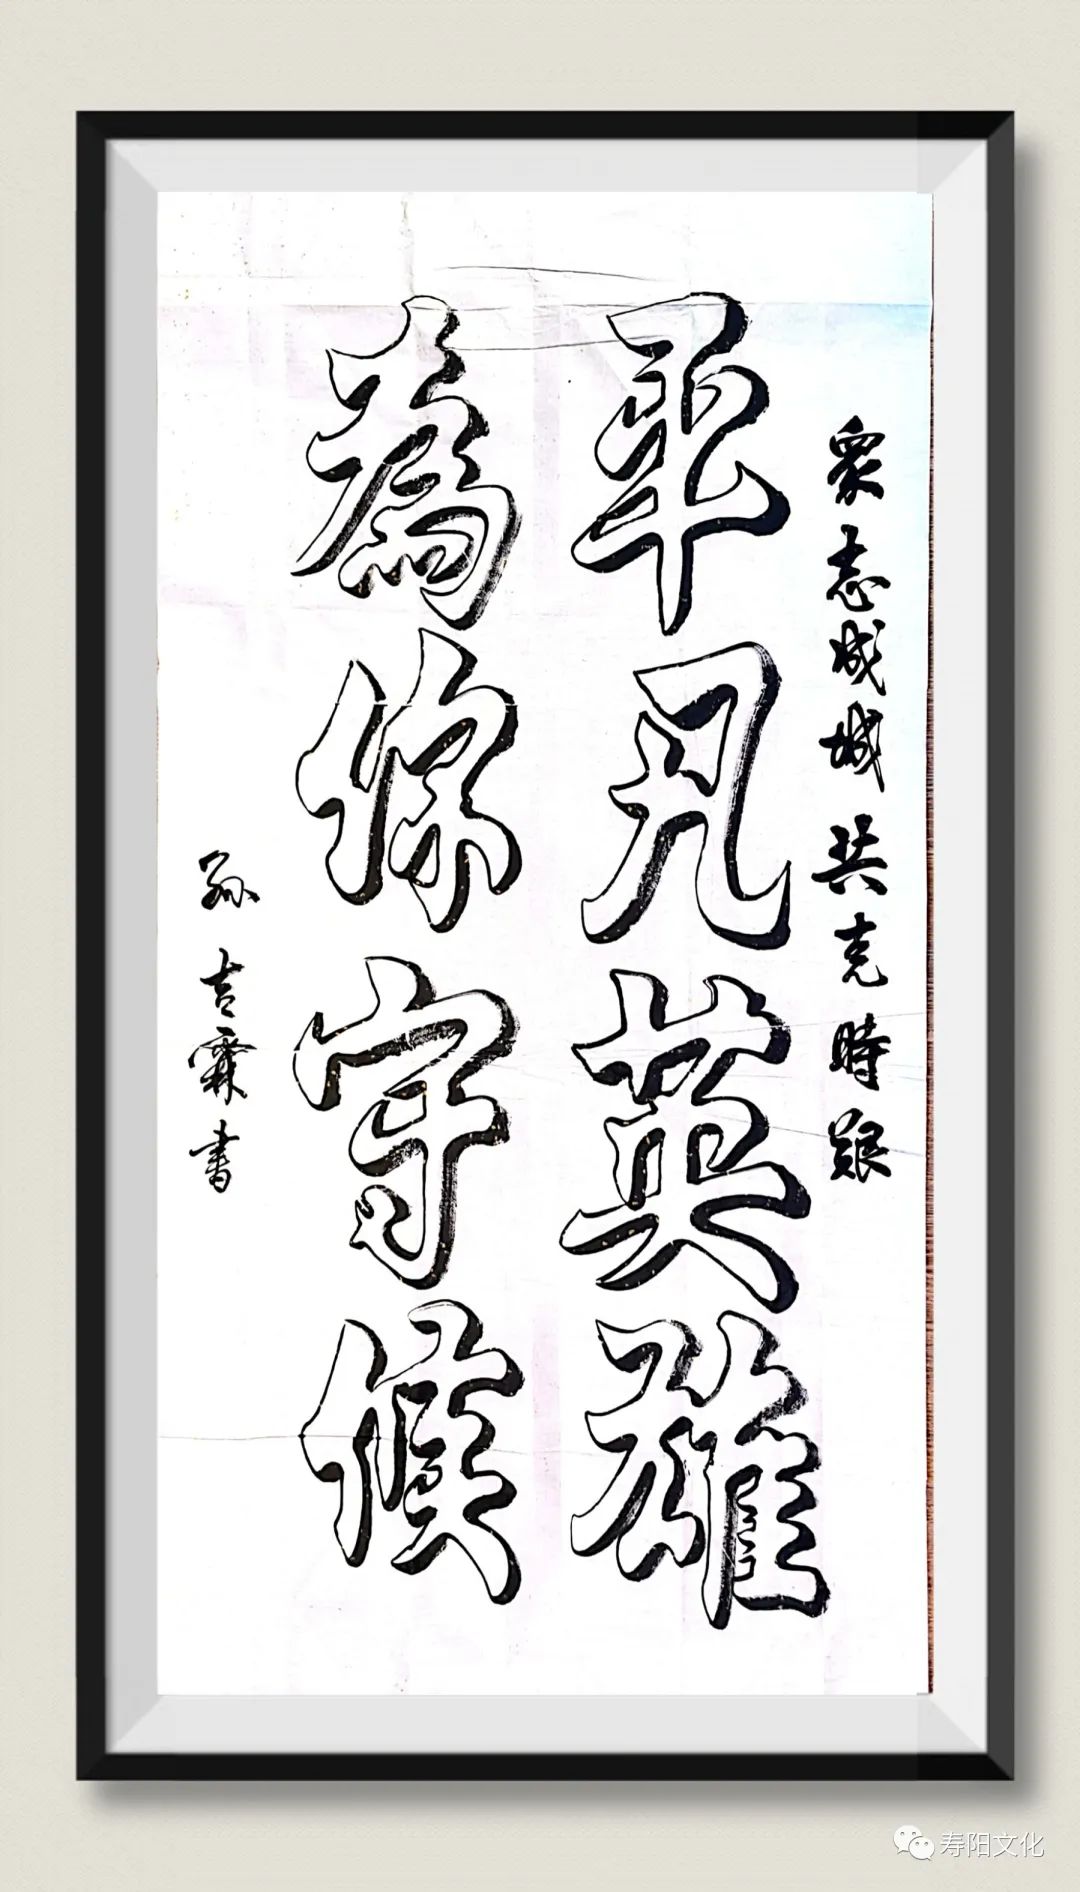 眾志成城共克時艱
平凡英雄
為你守候
孙吉霖书
寿阳文化